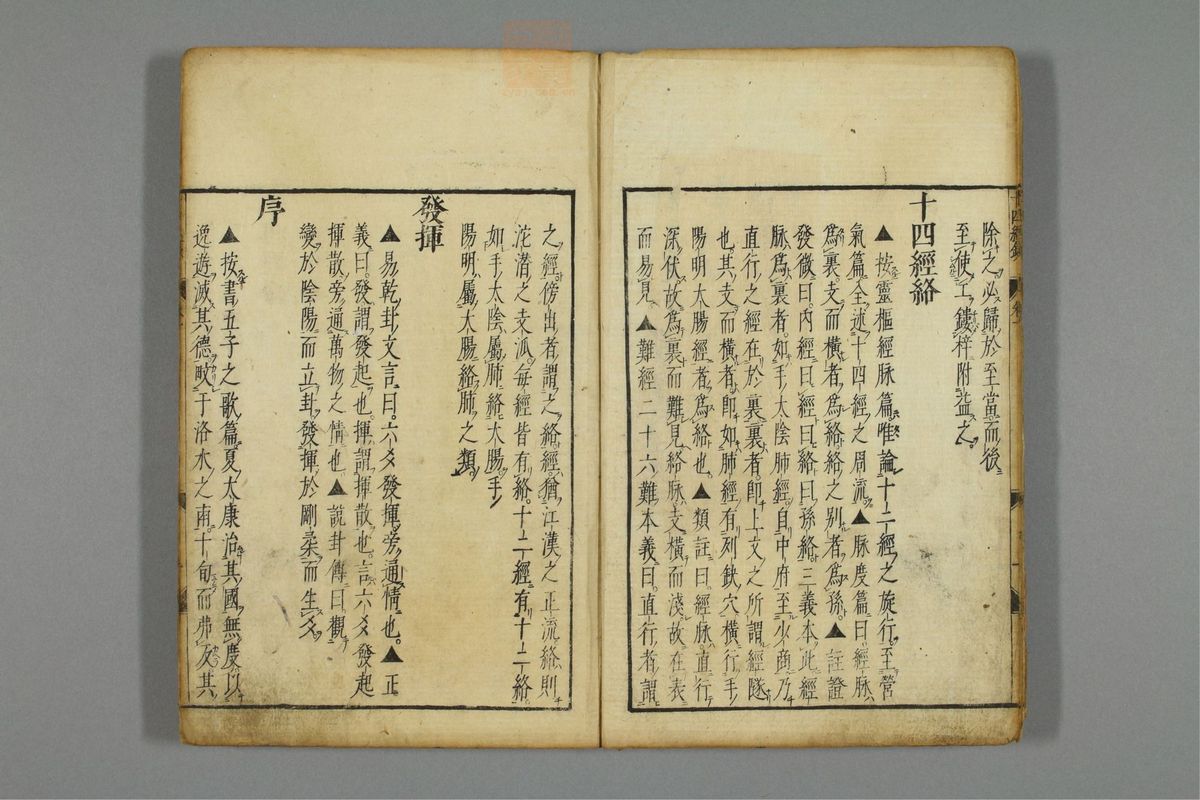 除之必歸於至當而後
至使工鏤梓附益之
十四經絡
▲按靈樞經脉篇唯論十二經之旋行至營
氣篇全述十四經之周流▲脉度篇曰經脉
爲裏支而橫者爲絡絡之别者爲孫▲註證
發微曰內經曰經曰絡曰孫絡三義本此經
脉爲裏者如手太陰肺經自中府至少商乃
直行之經在於裏裏者即上文之所謂經隧
也其支而橫者即如肺經有列缺穴橫行手
陽明太腸經者爲絡也▲類註曰經脉直行
深伏故爲裏而難見絡脉支橫而淺故在表
而易見▲難經二十六難本義曰直行者謂
之經傍出者謂之絡經猶江漢之正流絡則
沱潛之支派每經皆有絡十二經有十二絡
如手太陰屬肺絡太腸手
陽明屬太腸絡肺之類
發揮
▲易乾卦文言曰六爻發揮旁通情也▲正
義曰發謂發起也揮謂揮散也言六爻發起
揮散旁通萬物之情也▲說卦傳曰觀
變於陰陽而立卦發揮於剛柔而生爻
序
▲按書五子之歌篇夏太康治其國無度以
逸遊滅其德畋于洛水之南十旬而弗反其